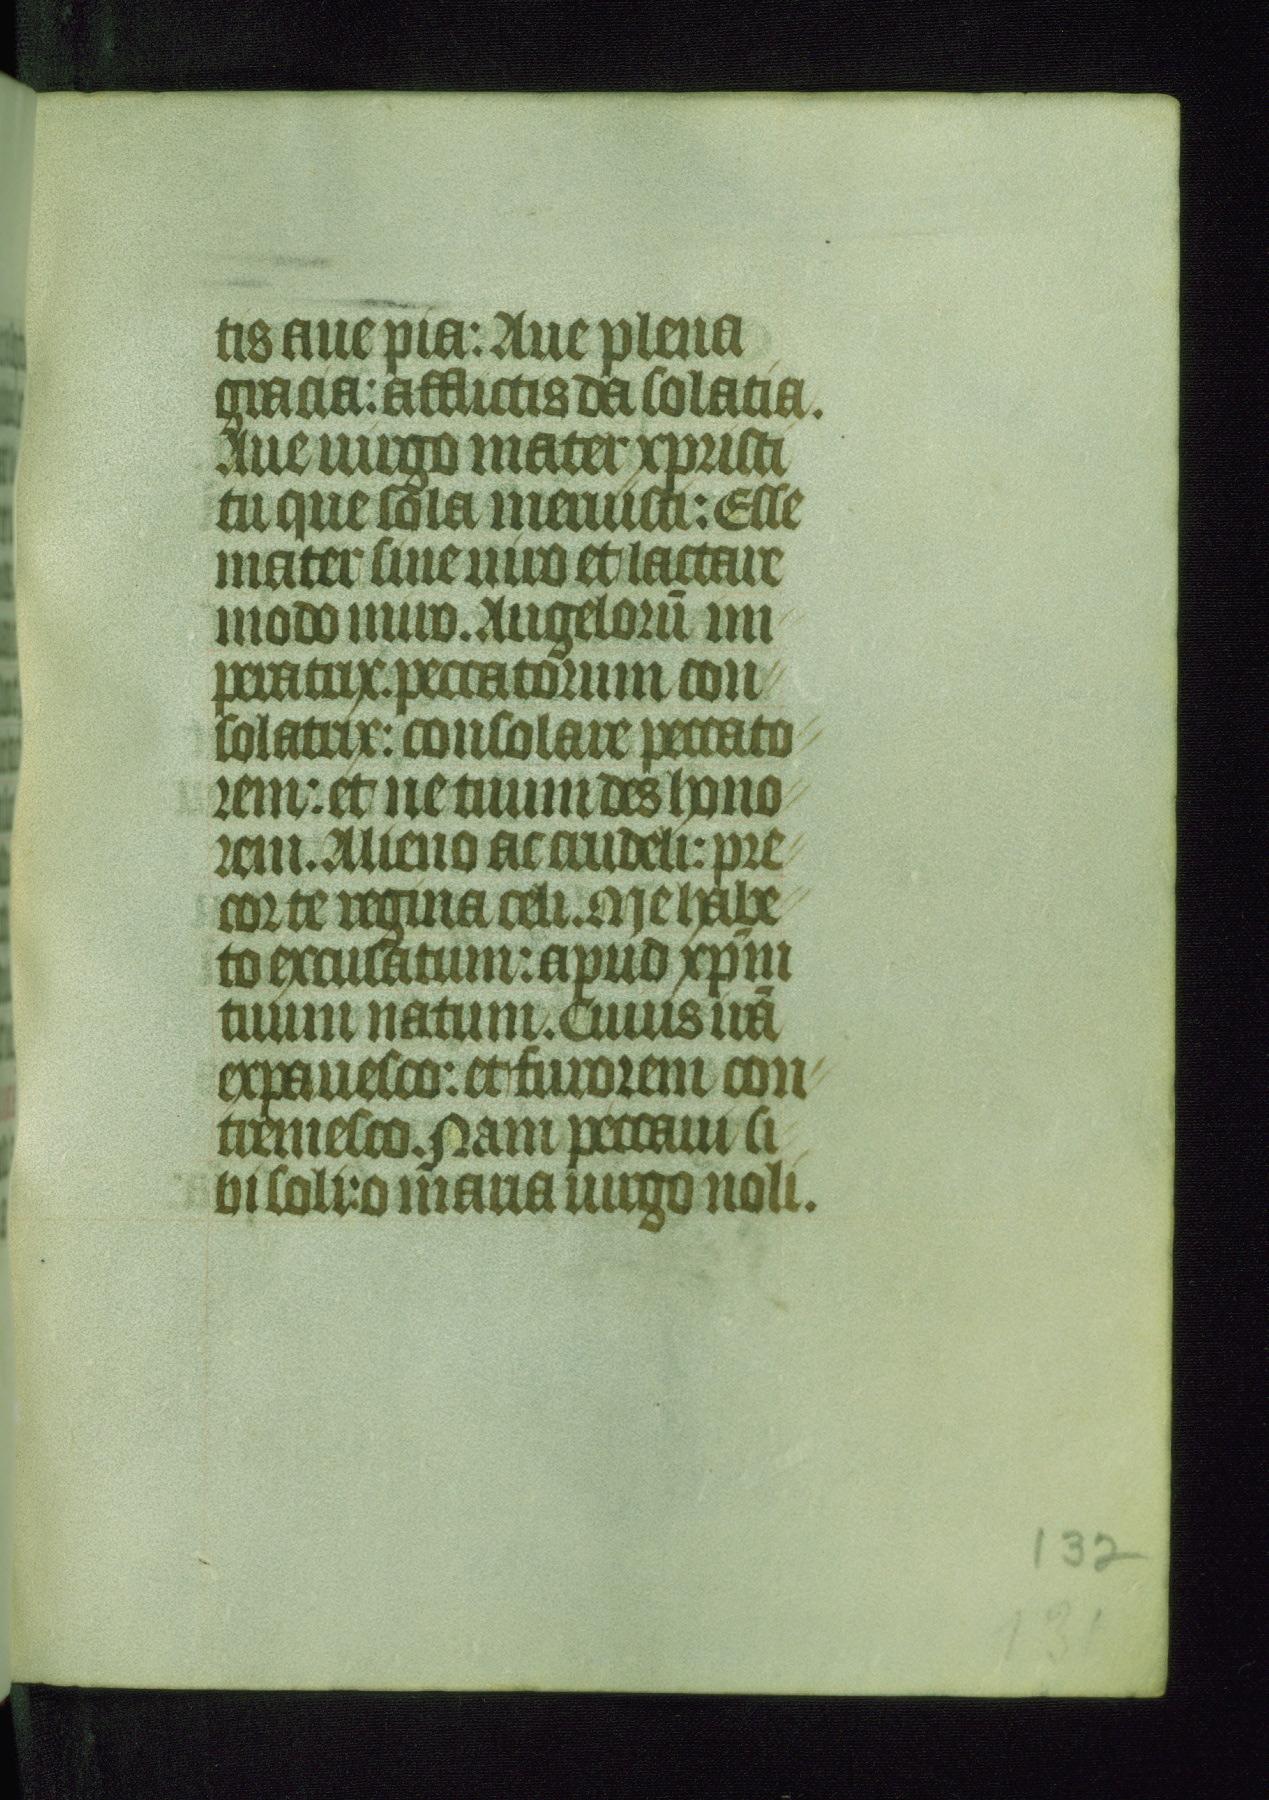 tis aue pia: Aue plena
gracia: afflictis da solatia.
Aue uirgo mater xpristi
tu que sola meruisti: Esse
mater sine uiro et lactare
modo miro. Angelorū im
peratrix. peccatorum con
solatrix: consolare peccato
rem: et ne tuum des hono
rem. Alieno ac crudeli: pre
cor te regina celi. Me habe
to excusatum: apud xp̄m
tuum natum. Cuius irā
expauesco: et furorem con
tremesco. Nam peccaui ti
bi soli: o maria uirgo noli.
132
131